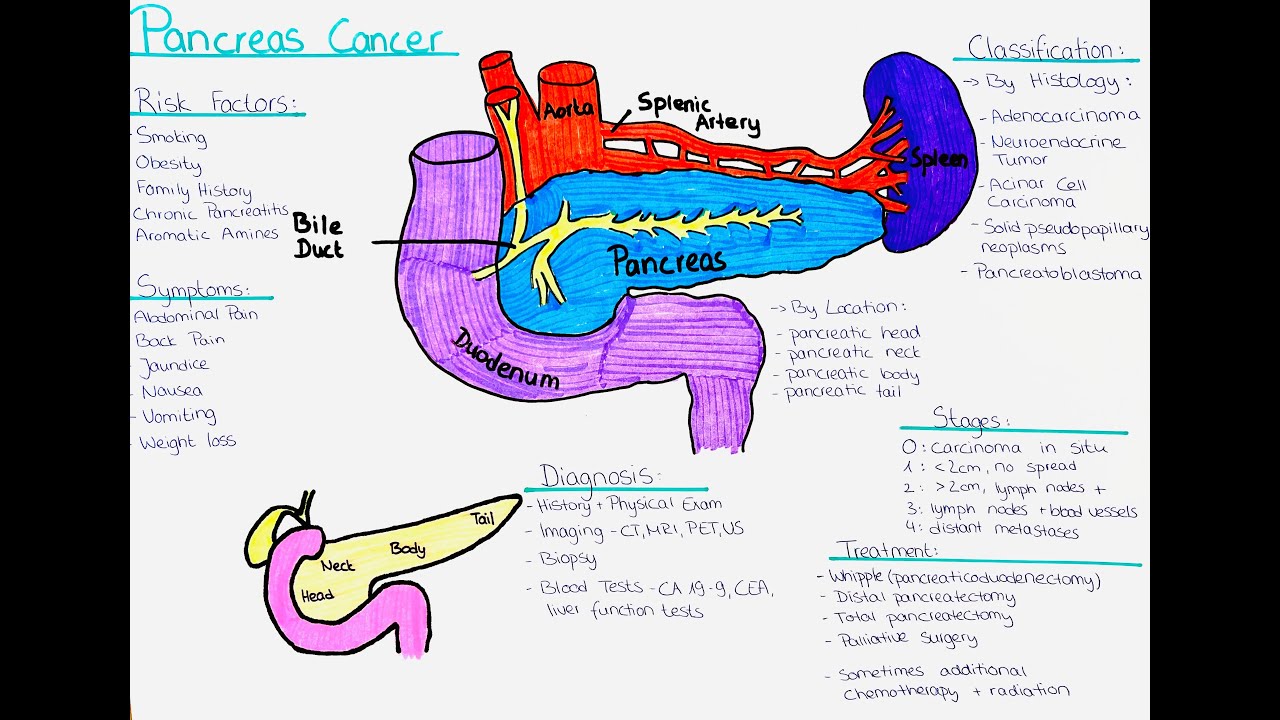 Pancreas Cancer
Risk Factors:
- Smoking
Obesity
Family History
Chronic Pancreatitis
Aromatic Amines
Symptoms:
Abdominal Pain
Back Pain
- Jaundice
- Nausea
- Vomiting
- Weight loss
Aorta
Splenic
Artery
Spleen
Bile
Duct
Pancreas
Duodenum
Classification:
-> By Histology:
- Adenocarcinoma
- Neuroendocrine
Tumor
- Acinar Cell
Carcinoma
- Solid pseudopapillary
neoplasms
- Pancreatoblastoma
-> By Location:
- pancreatic head
- pancreatic neck
- pancreatic body
- pancreatic tail
Stages:
0: carcinoma in situ
1: <2cm, no spread
2: >2cm, lymph nodes +
3: lymph nodes + blood vessels
4: distant metastases
Tail
Body
Neck
Head
Diagnosis:
- History + Physical Exam
- Imaging - CT, MRI, PET, US
- Biopsy
- Blood Tests - CA 19-9, CEA,
liver function tests
Treatment:
- Whipple (pancreaticoduodenectomy)
- Distal pancreatectomy
- Total pancreatectomy
- Palliative surgery
- Sometimes additional
chemotherapy + radiation